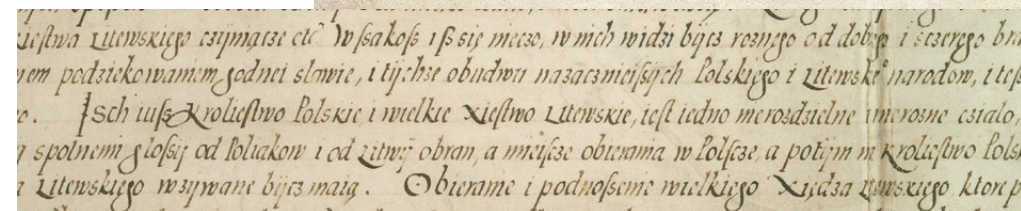 xięstwa Litewskiego czÿniącze etc̃ Wssakosz isz się nieczo, w nich widzi bÿcz roznego od dobrego i sczerego
niem podziekowaniem godnei sławie, i tÿchze obudwu nazacznieiszych Polskiego i Litewskiego narodow, i
Isch iusz Krolięstwo Polskie i wielkie Xięstwo Litewskie, iest iedno nierozdzielne inierozne cziało,
spolnemi głossÿ od Poliakow i od Litwÿ obran, a mieisce obierania w Polscze, a potÿm na Krolięstwo
Litewskiego wzÿwane bÿcz maią. Obieranie i podnossenie wielkiego Xiędza Litewskiego ktore